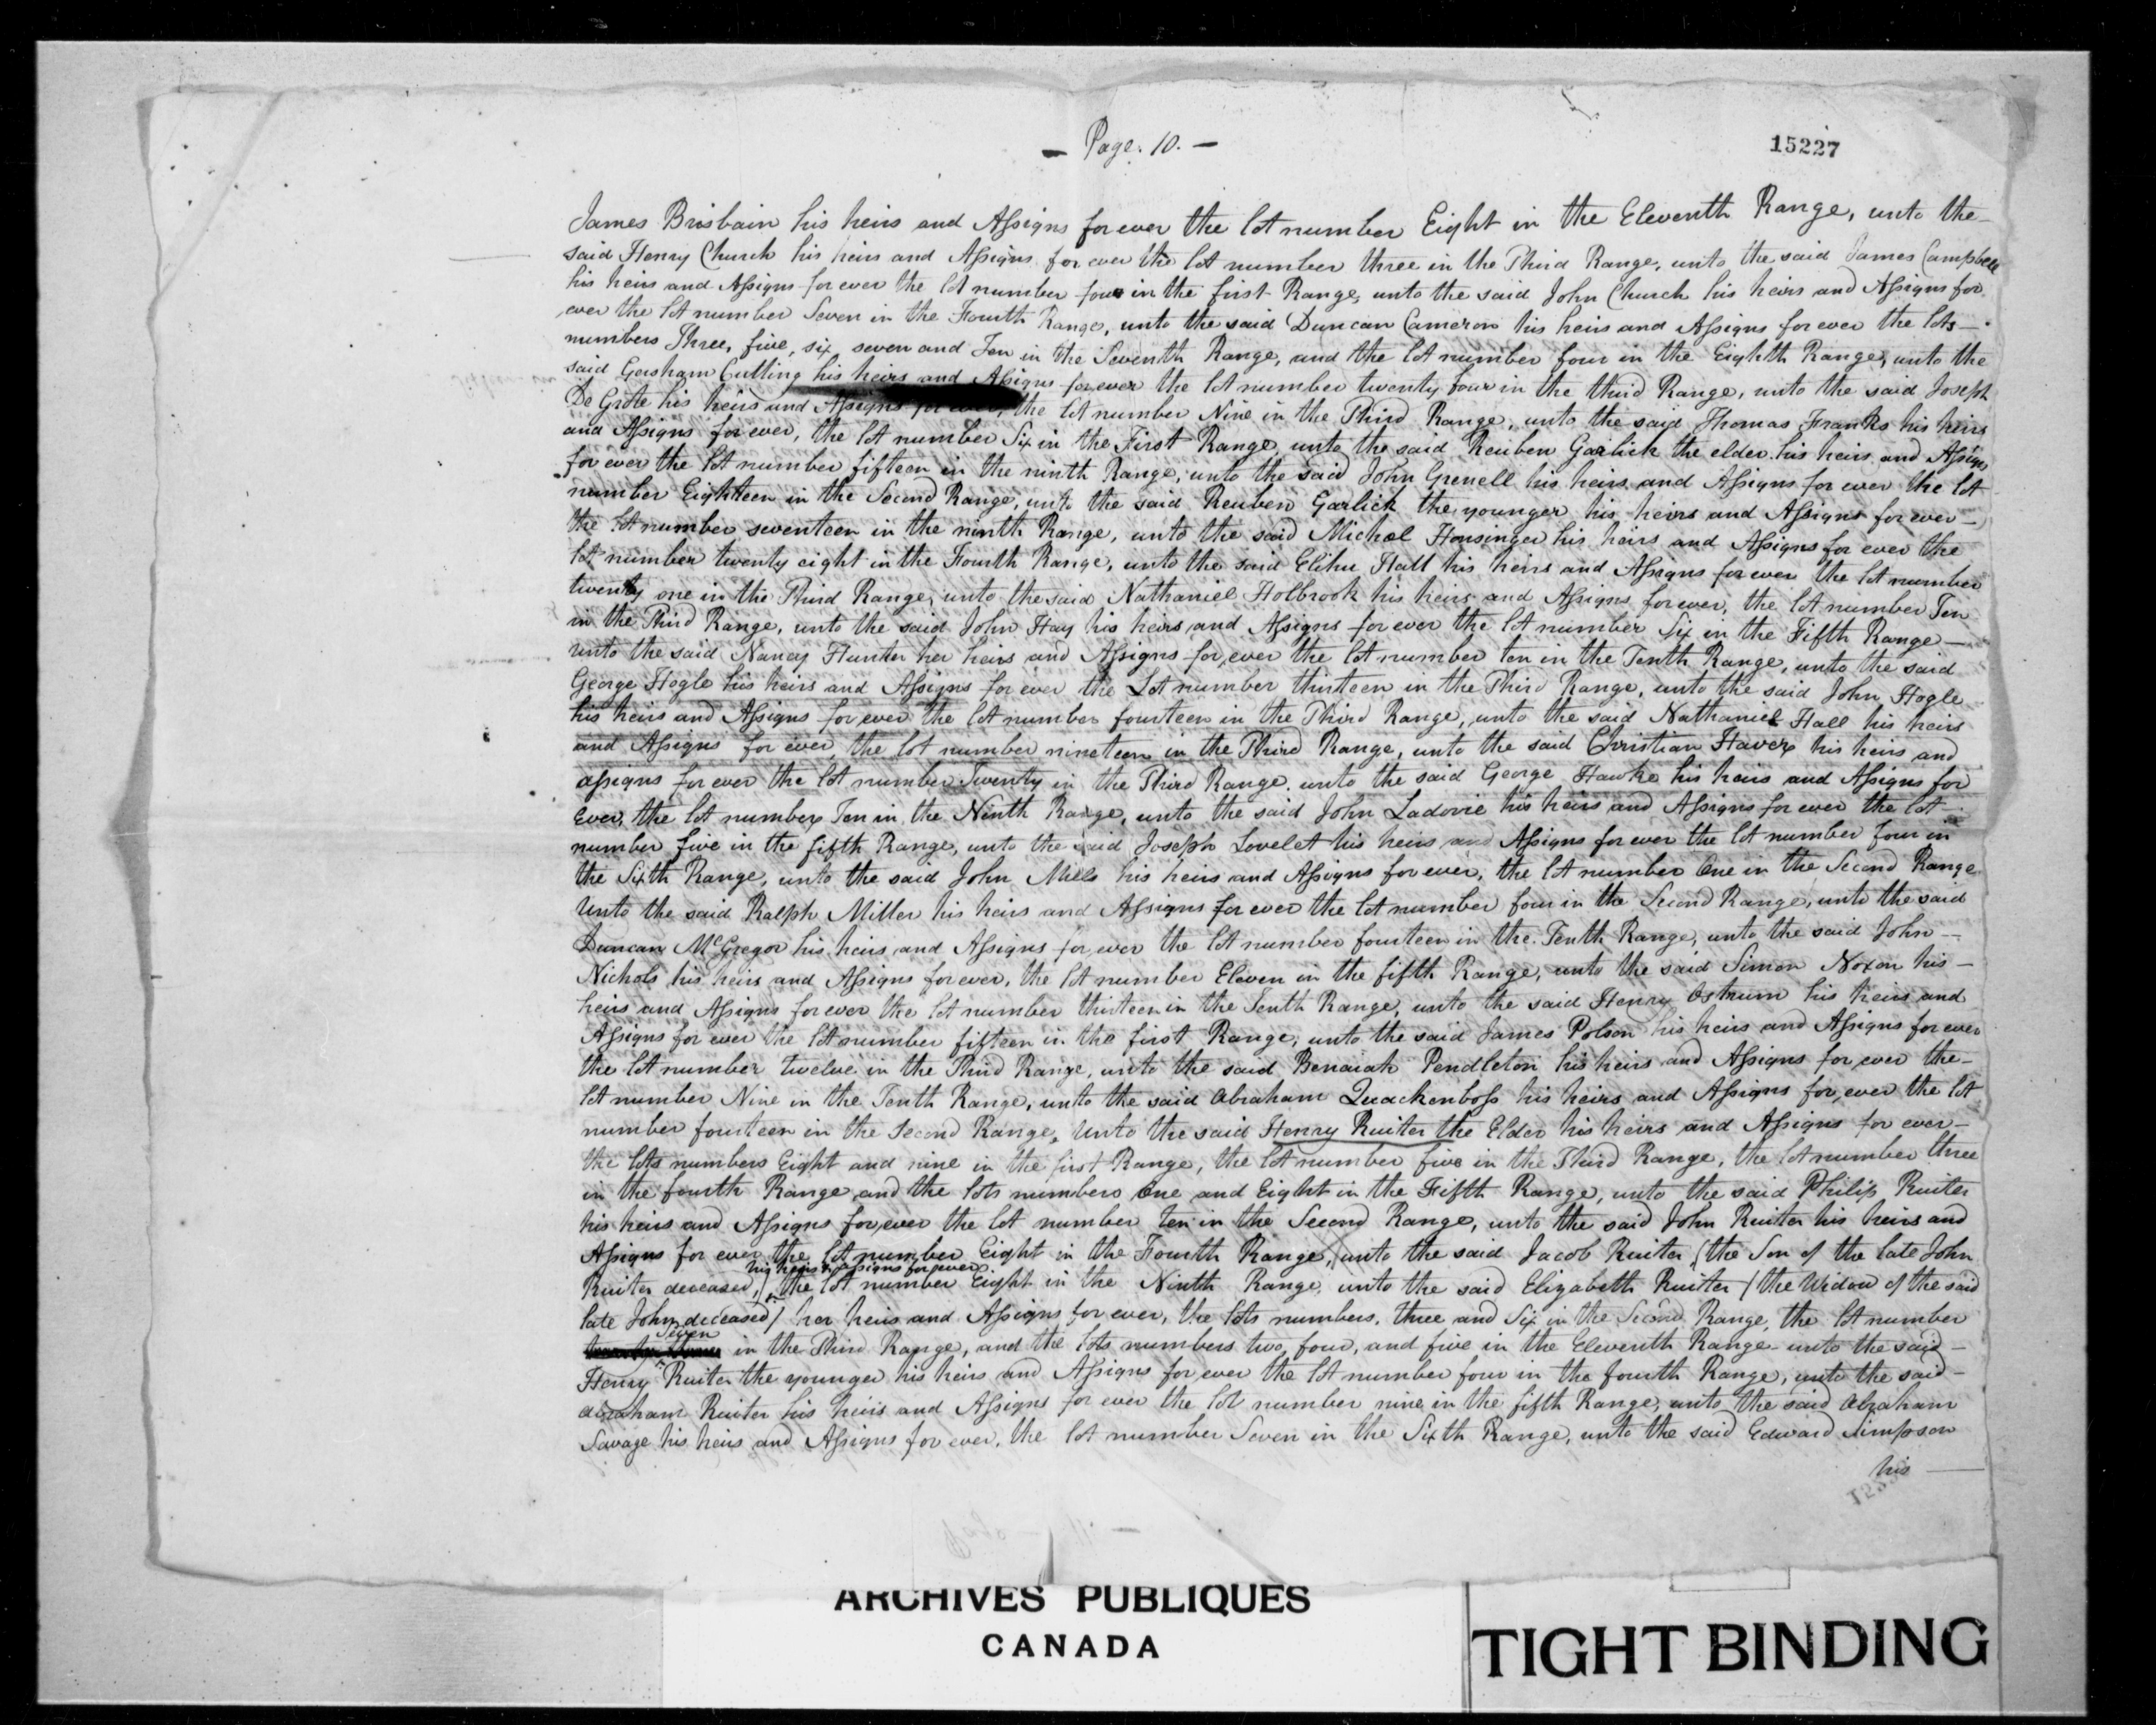 - Page. 10. -
15227
James Brisbain his heirs and Assigns for ever the lot number Eight in the Eleventh Range, unto the
said Henry Church his heirs and Assigns for ever the lot number three in the Third Range, unto the said James Campbell
his heirs and Assigns for ever the lot number four in the first Range, unto the said John Church his heirs and Assigns for
ever the lot number Seven in the Fourth Range, unto the said Duncan Cameron his heirs and Assigns for ever the lots
numbers Three, five, six, seven and Ten in the Seventh Range, and the lot number four in the Eighth Range, unto the
said Gersham Cutting his heirs and Assigns for ever the lot number twenty four in the third Range, unto the said Joseph
De Grote his heirs and Assigns for ever, the lot number Nine in the Third Range, unto the said Thomas Franks his heirs
and Assigns for ever, the lot number Six in the First Range, unto the said Reuben Garlick the elder his heirs and Assigns
for ever the lot number fifteen in the ninth Range, unto the said John Grenell his heirs and Assigns for ever the lot
number Eighteen in the Second Range, unto the said Reuben Garlick the younger his heirs and Assigns for ever
the lot number seventeen in the ninth Range, unto the said Michal Honsinger his heirs and Assigns for ever the
lot number twenty eight in the Fourth Range, unto the said Elihu Hall his heirs and Assigns for ever the lot number
twenty one in the Third Range, unto the said Nathaniel Holbrook his heirs and Assigns for ever, the lot number Ten
in the Third Range, unto the said John Hay his heirs and Assigns for ever the lot number Six in the Fifth Range
unto the said Nancy Hunter her heirs and Assigns for ever the lot number ten in the Tenth Range, unto the said
George Hogle his heirs and Assigns for ever the Lot number thirteen in the Third Range, unto the said John Hogle
his heirs and Assigns for ever the lot number fourteen in the Third Range, unto the said Nathaniel Hall his heirs
and Assigns for ever, the lot number nineteen in the Third Range, unto the said Christian Haver his heirs and
assigns for ever the lot number Twenty in the Third Range, unto the said George Hawke his heirs and Assigns for
Ever, the lot number Ten in the Ninth Range, unto the said John Ladovie his heirs and Assigns for ever the lot
number five in the fifth Range, unto the said Joseph Lovelet his heirs and Assigns for ever the lot number four in
the Sixth Range, unto the said John Mills his heirs and Assigns for ever, the lot number One in the Second Range
Unto the said Ralph Miller his heirs and Assigns for ever the lot number four in the Second Range, unto the said
Duncan McGregor his heirs and Assigns for ever the lot number fourteen in the Tenth Range, unto the said John
Nichols his heirs and Assigns for ever, the lot number Eleven in the fifth Range, unto the said Simon Noxon his
heirs and Assigns for ever the lot number thirteen in the Tenth Range, unto the said Henry Ostrum his heirs and
Assigns for ever the lot number fifteen in the first Range, unto the said James Polson his heirs and Assigns for ever
the lot number twelve in the Third Range, unto the said Benaiah Pendleton his heirs and Assigns for ever the
lot number Nine in the Tenth Range, unto the said Abraham Quackenboss his heirs and Assigns for ever the lot
number fourteen in the Second Range, Unto the said Henry Ruiter the Elder his heirs and Assigns for ever
the lots numbers Eight and nine in the first Range, the lot number five in the Third Range, the lot number three
in the fourth Range and the lots numbers One and Eight in the Fifth Range, unto the said Philip Ruiter
his heirs and Assigns for ever the lot number ten in the Second Range, unto the said John Ruiter his heirs and
Assigns for ever the lot number Eight in the Fourth Range, unto the said Jacob Ruiter (the Son of the late John
his heirs & assigns for ever
Ruiter deceased,) the lot number Eight in the Ninth Range, unto the said Elizabeth Ruiter (the Widow of the said
late John deceased) her heirs and Assigns for ever, the lots numbers, three and Six in the Second Range, the lot number
Seven
in the Third Range, and the lots numbers two, four, and five in the Eleventh Range unto the said
Henry Ruiter the younger his heirs and Assigns for ever the lot number four in the fourth Range, unto the said
Abraham Ruiter his heirs and Assigns for ever the lot number nine in the fifth Range, unto the said Abraham
Savage his heirs and Assigns for ever, the lot number Seven in the Sixth Range, unto the said Edward Simpson
his
ARCHIVES PUBLIQUES
CANADA
TIGHT BINDING